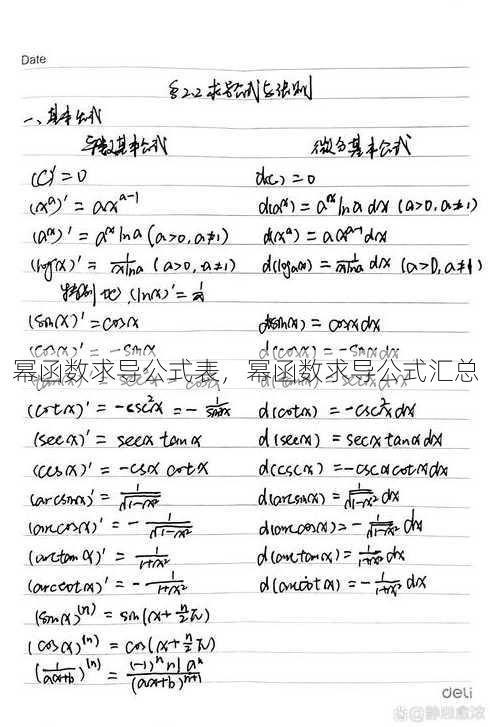 Date
§2.2 求导公式与法则
一、基本公式
导数基本公式 微分基本公式
(C)'=0 d(c)=0
(x^a)'=ax^{a-1} d(a^x)=a^x ln a dx (a>0,a≠1)
(a^x)'=a^x ln a (a>0,a≠1) d(x^a)=ax^{a-1}dx
(log_a x)'=\frac{1}{x ln a} (a>0,a≠1) d(log_a x)=\frac{1}{x ln a} dx (a>0,a≠1)
特别地,(ln x)'=\frac{1}{x}
(sin x)'=cos x d(sin x)=cos x dx
(cos x)'=-sin x d(cos x)=-sin x dx
幂函数求导公式表，幂函数求导公式汇总
(cot x)'=-csc²x=-\frac{1}{sin²x} d(cot x)=-csc²x dx
(sec x)'=sec x tan x d(sec x)=sec x tan x dx
(csc x)'=-csc x cot x d(csc x)=-csc x cot x dx
(arcsin x)'=\frac{1}{\sqrt{1-x²}} d(arcsin x)=\frac{1}{\sqrt{1-x²}}dx
(arccos x)'=-\frac{1}{\sqrt{1-x²}} d(arccos x)=-\frac{1}{\sqrt{1-x²}}dx
(arctan x)'=\frac{1}{1+x²} d(arctan x)=\frac{1}{1+x²}dx
(arccot x)'=-\frac{1}{1+x²} d(arccot x)=-\frac{1}{1+x²}dx
(sin x)^{(n)}=sin(x+\frac{n}{2}π)
(cos x)^{(n)}=cos(x+\frac{n}{2}π)
(\frac{1}{ax+b})^{(n)}=\frac{(-1)^n n! a^n}{(ax+b)^{n+1}}
deli